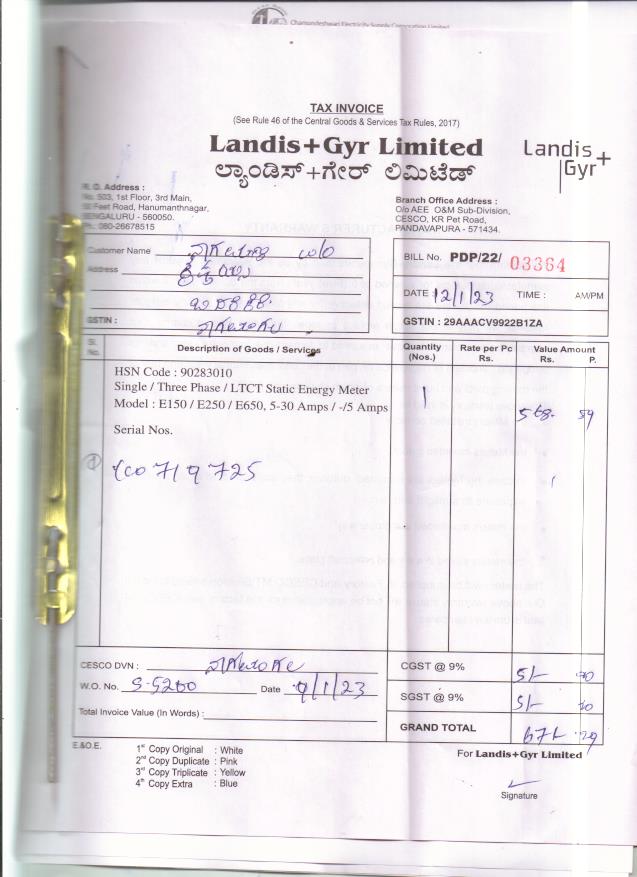 Chamundeshwari Electricity Supply Corporation Limited
TAX INVOICE
(See Rule 46 of the Central Goods & Services Tax Rules, 2017)
Landis+Gyr Limited
ಲ್ಯಾಂಡಿಸ್+ಗೇರ್ ಲಿಮಿಟೆಡ್
Landis+
Gyr
R. O. Address :
No. 503, 1st Floor, 3rd Main,
Feet Road, Hanumanthnagar,
BENGALURU - 560050.
Ph.: 080-26678515
Branch Office Address :
O/o AEE O&M Sub-Division,
CESCO, KR Pet Road,
PANDAVAPURA - 571434.
Customer Name
Address
GSTIN :
BILL No. PDP/22/ 03364
DATE : 12/1/23 TIME : AM/PM
GSTIN : 29AAACV9922B1ZA
Sl. No. Description of Goods / Services Quantity (Nos.) Rate per Pc Rs. Value Amount Rs. P.
HSN Code : 90283010
Single / Three Phase / LTCT Static Energy Meter
Model : E150 / E250 / E650, 5-30 Amps / -/5 Amps 1
Serial Nos.
719725
CESCO DVN :
W.O. No. S-5200 Date 9/1/23
Total Invoice Value (In Words) :
CGST @ 9%
SGST @ 9%
GRAND TOTAL
E.&O.E.
1st Copy Original : White
2nd Copy Duplicate : Pink
3rd Copy Triplicate : Yellow
4th Copy Extra : Blue
For Landis+Gyr Limited
Signature